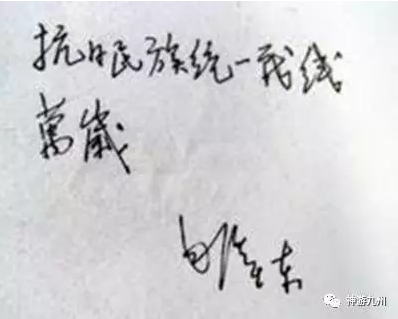 抗日民族统一战线
萬歲
毛泽东
神游九州